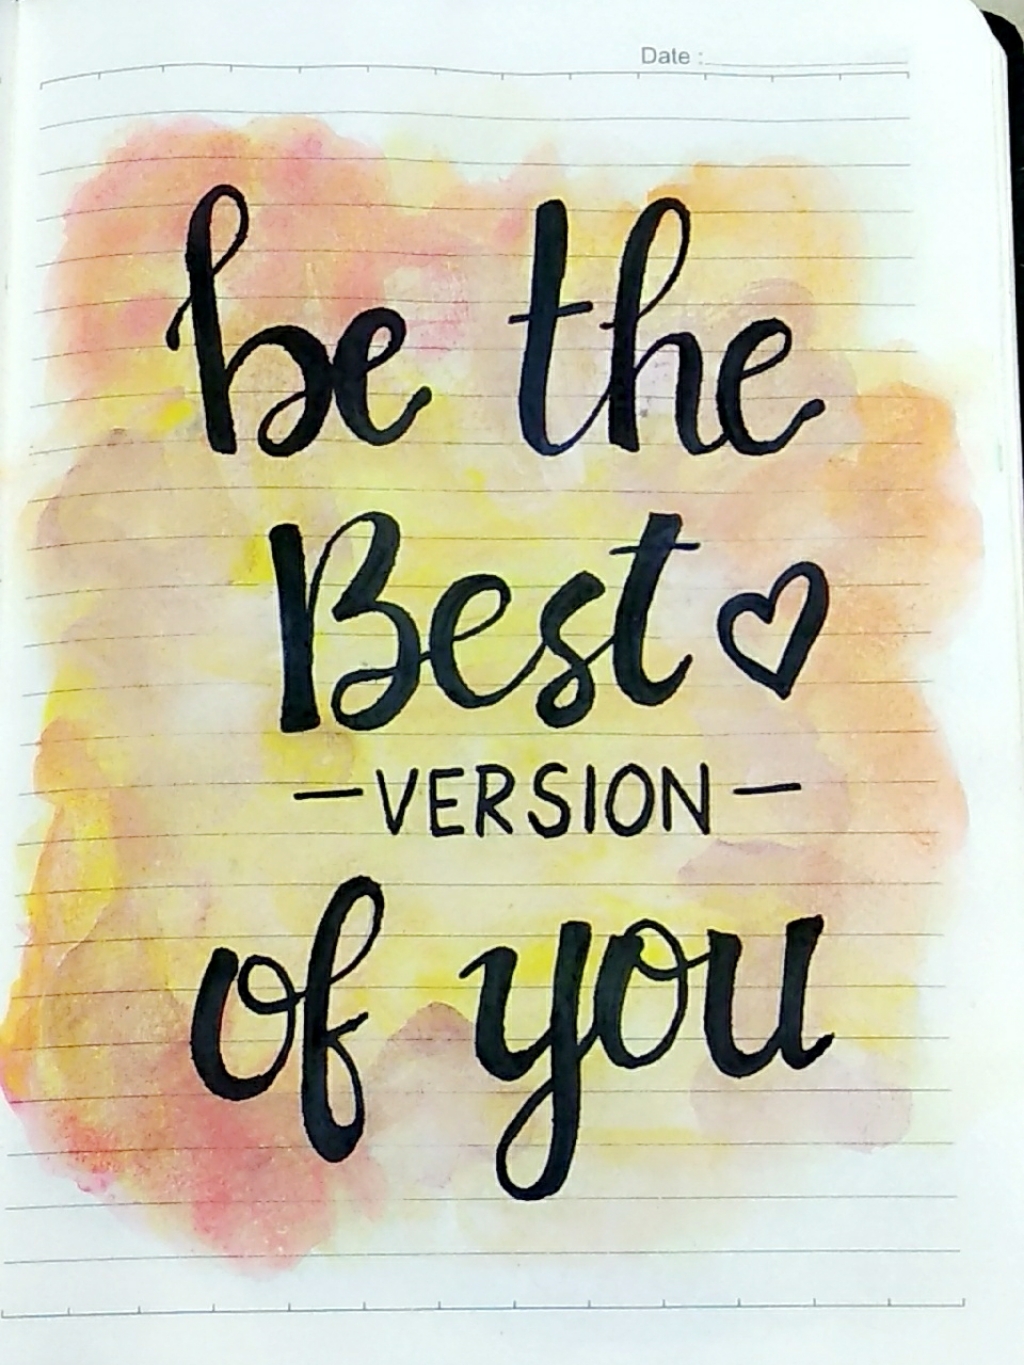 Date :
be the
Best
—VERSION—
of you